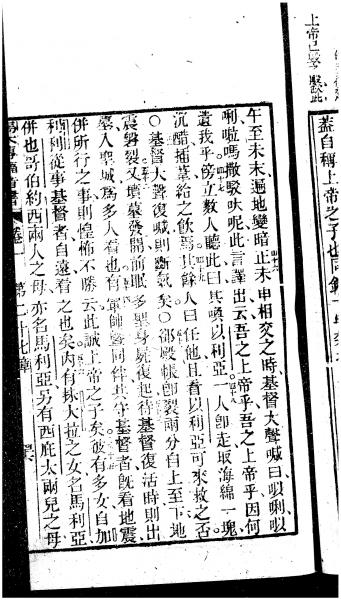 上帝已
蓋自稱上帝之子也同
午至未末遍地變暗止未申相交之時基督大聲喊曰唄唎唄
唎啦嗎撒駁呔呢此言譯出云吾之上帝乎吾之上帝乎因何
遺我乎傍立數人聽此曰其喚以利亞一人卽走取海綿一塊
沉醋插葦給之飲焉其餘人曰任他且看以利亞可來救之否
〇基督大聲復喊則斷氣矣〇卻殿帳卽裂兩分自上至下地
震磐裂又墳墓發開前眠多聖身屍復起待基督復活時則出
墓入聖城爲多人看也有軍師曁同伴共守基督者旣看地震
併所行之事則惶怖不勝云此誠上帝之子矣彼有多女自加
利利從事基督者自遠看之也矣內有抹大拉之女名馬利亞
併也哥伯約西兩人之母亦名馬利亞另有西庇太兩兒之母
卷一 第二十七章